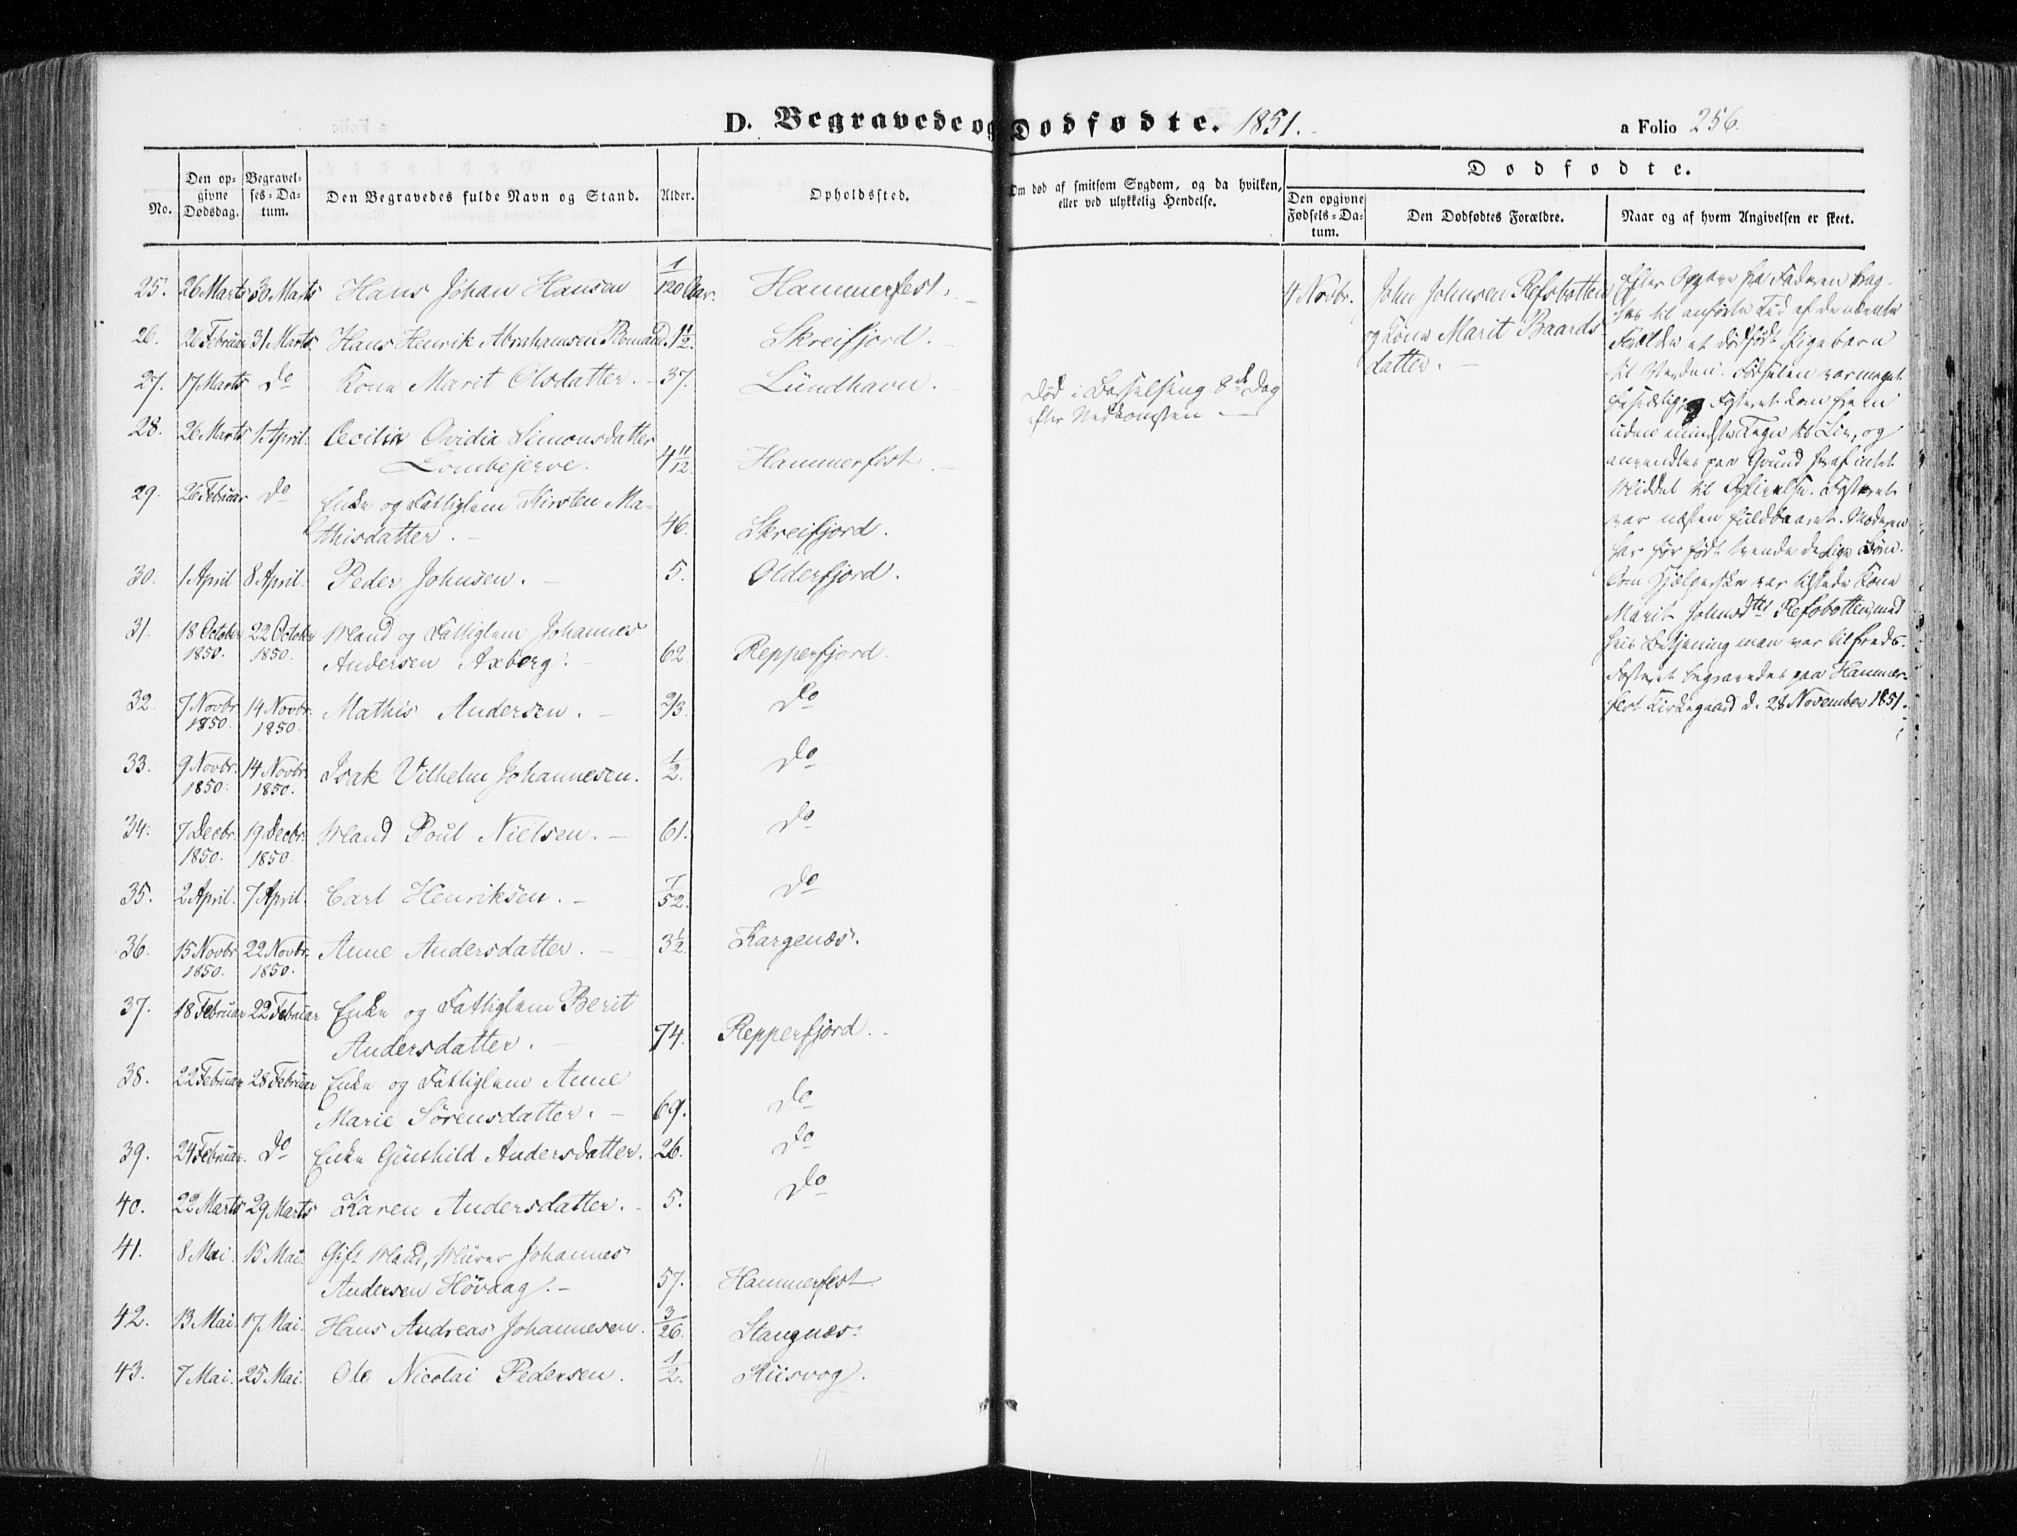 D. Begravede og Dødfødte. 1851.
a Folio 256.
No.
Den opgivne Dødsdag.
Begravelses-Datum.
Den Begravedes fulde Navn og Stand.
Alder.
Opholdssted.
Om død af smitsom Sygdom, og da hvilken,
eller ved ulykkelig Hendelse.
Dødfødte.
Den opgivne Fødsels-Datum.
Den Dødfødtes Forældre.
Naar og af hvem Angivelsen er skeet.
25. 26 Marts 30 Marts Hans Johan Hansen 1/120 Aar. Hammerfest.
26. 26 Februar 31 Marts Hans Henrik Abrahamsen 1 1/2. Skreifjord.
27. 17 Marts Do Kone Marit Olsdatter. 37. Lündhavn.
Død i Barselseng 8de Dag
efter Nedkomsten
28. 26 Marts 1 April. Cecilia Ovidia Simonsdatter
Lombejerve. 4 11/12 Hammerfest
29. 26 Februar Do Enke og Fattiglem Kirsten Ma-
thisdatter. 46. Skreifjord.
30. 1 April 8 April. Peder Johnsen. 5. Olderfjord.
31. 18 October 1850. 22 October 1850. Mand og Fattiglem Johannes
Andersen Axberg. 62. Repperfjord.
32. 7 Novbr. 1850. 14 Novbr. 1850. Mathis Andersen. 2/3. Do
33. 9 Novbr. 1850. 14 Novbr. 1850. Isak Vilhelm Johannesen. 1/2. Do
34. 7 Decbr. 1850. 19 Decbr. 1850. Mand Poul Nielsen. 61. Do
35. 2 April. 7 April. Carl Henriksen. 7/52. Do
36. 15 Novbr. 1850. 22 Novbr. 1850. Anne Andersdatter. 3 1/2. Kargenæs.
37. 18 Februar 22 Februar Enke og Fattiglem Berit
Andersdatter. 74. Repperfjord.
38. 22 Februar 28 Februar Enke og Fattiglem Anne
Marie Sørensdatter. 69. Do
39. 24 Februar. Do Enke Günhild Andersdatter. 26. Do
40. 22 Marts 29 Marts Karen Andersdatter. 5. Do
41. 8 Mai. 15 Mai. Gift Mand, Murer Johannes
Andersen Hövaag. 57. Hammerfest
42. 13 Mai. 17 Mai. Hans Andreas Johannesen. 3/26. Stangnæs.
43. 7 Mai. 25 Mai. Ole Nicolai Pedersen. 1/2. Riisvog.
4 Novbr.
John Johnsen Refsbotten
og Kone Marit Baards
datter.
Efter Opgave fra Faderen
til anførte Tid af de nævnte
Forældre et dødfødt Pigebarn
til Verden. Fødselen var meget
Fosteret kom frem
uden mindste Tegn til Liv, og
anvendtes paa Grund heraf intet
Middel til Oplivelse. Fosteret
var næsten fuldbaaret. Moderen
har før født trende Børn.
Som Hjælperske var tilstede Kone
Marit Johnsdtr Refsbotten, med
hvis Betjening man var tilfreds.
Fosteret begravedes paa Hammer-
fest Kirkegaard d. 28 November 1851.